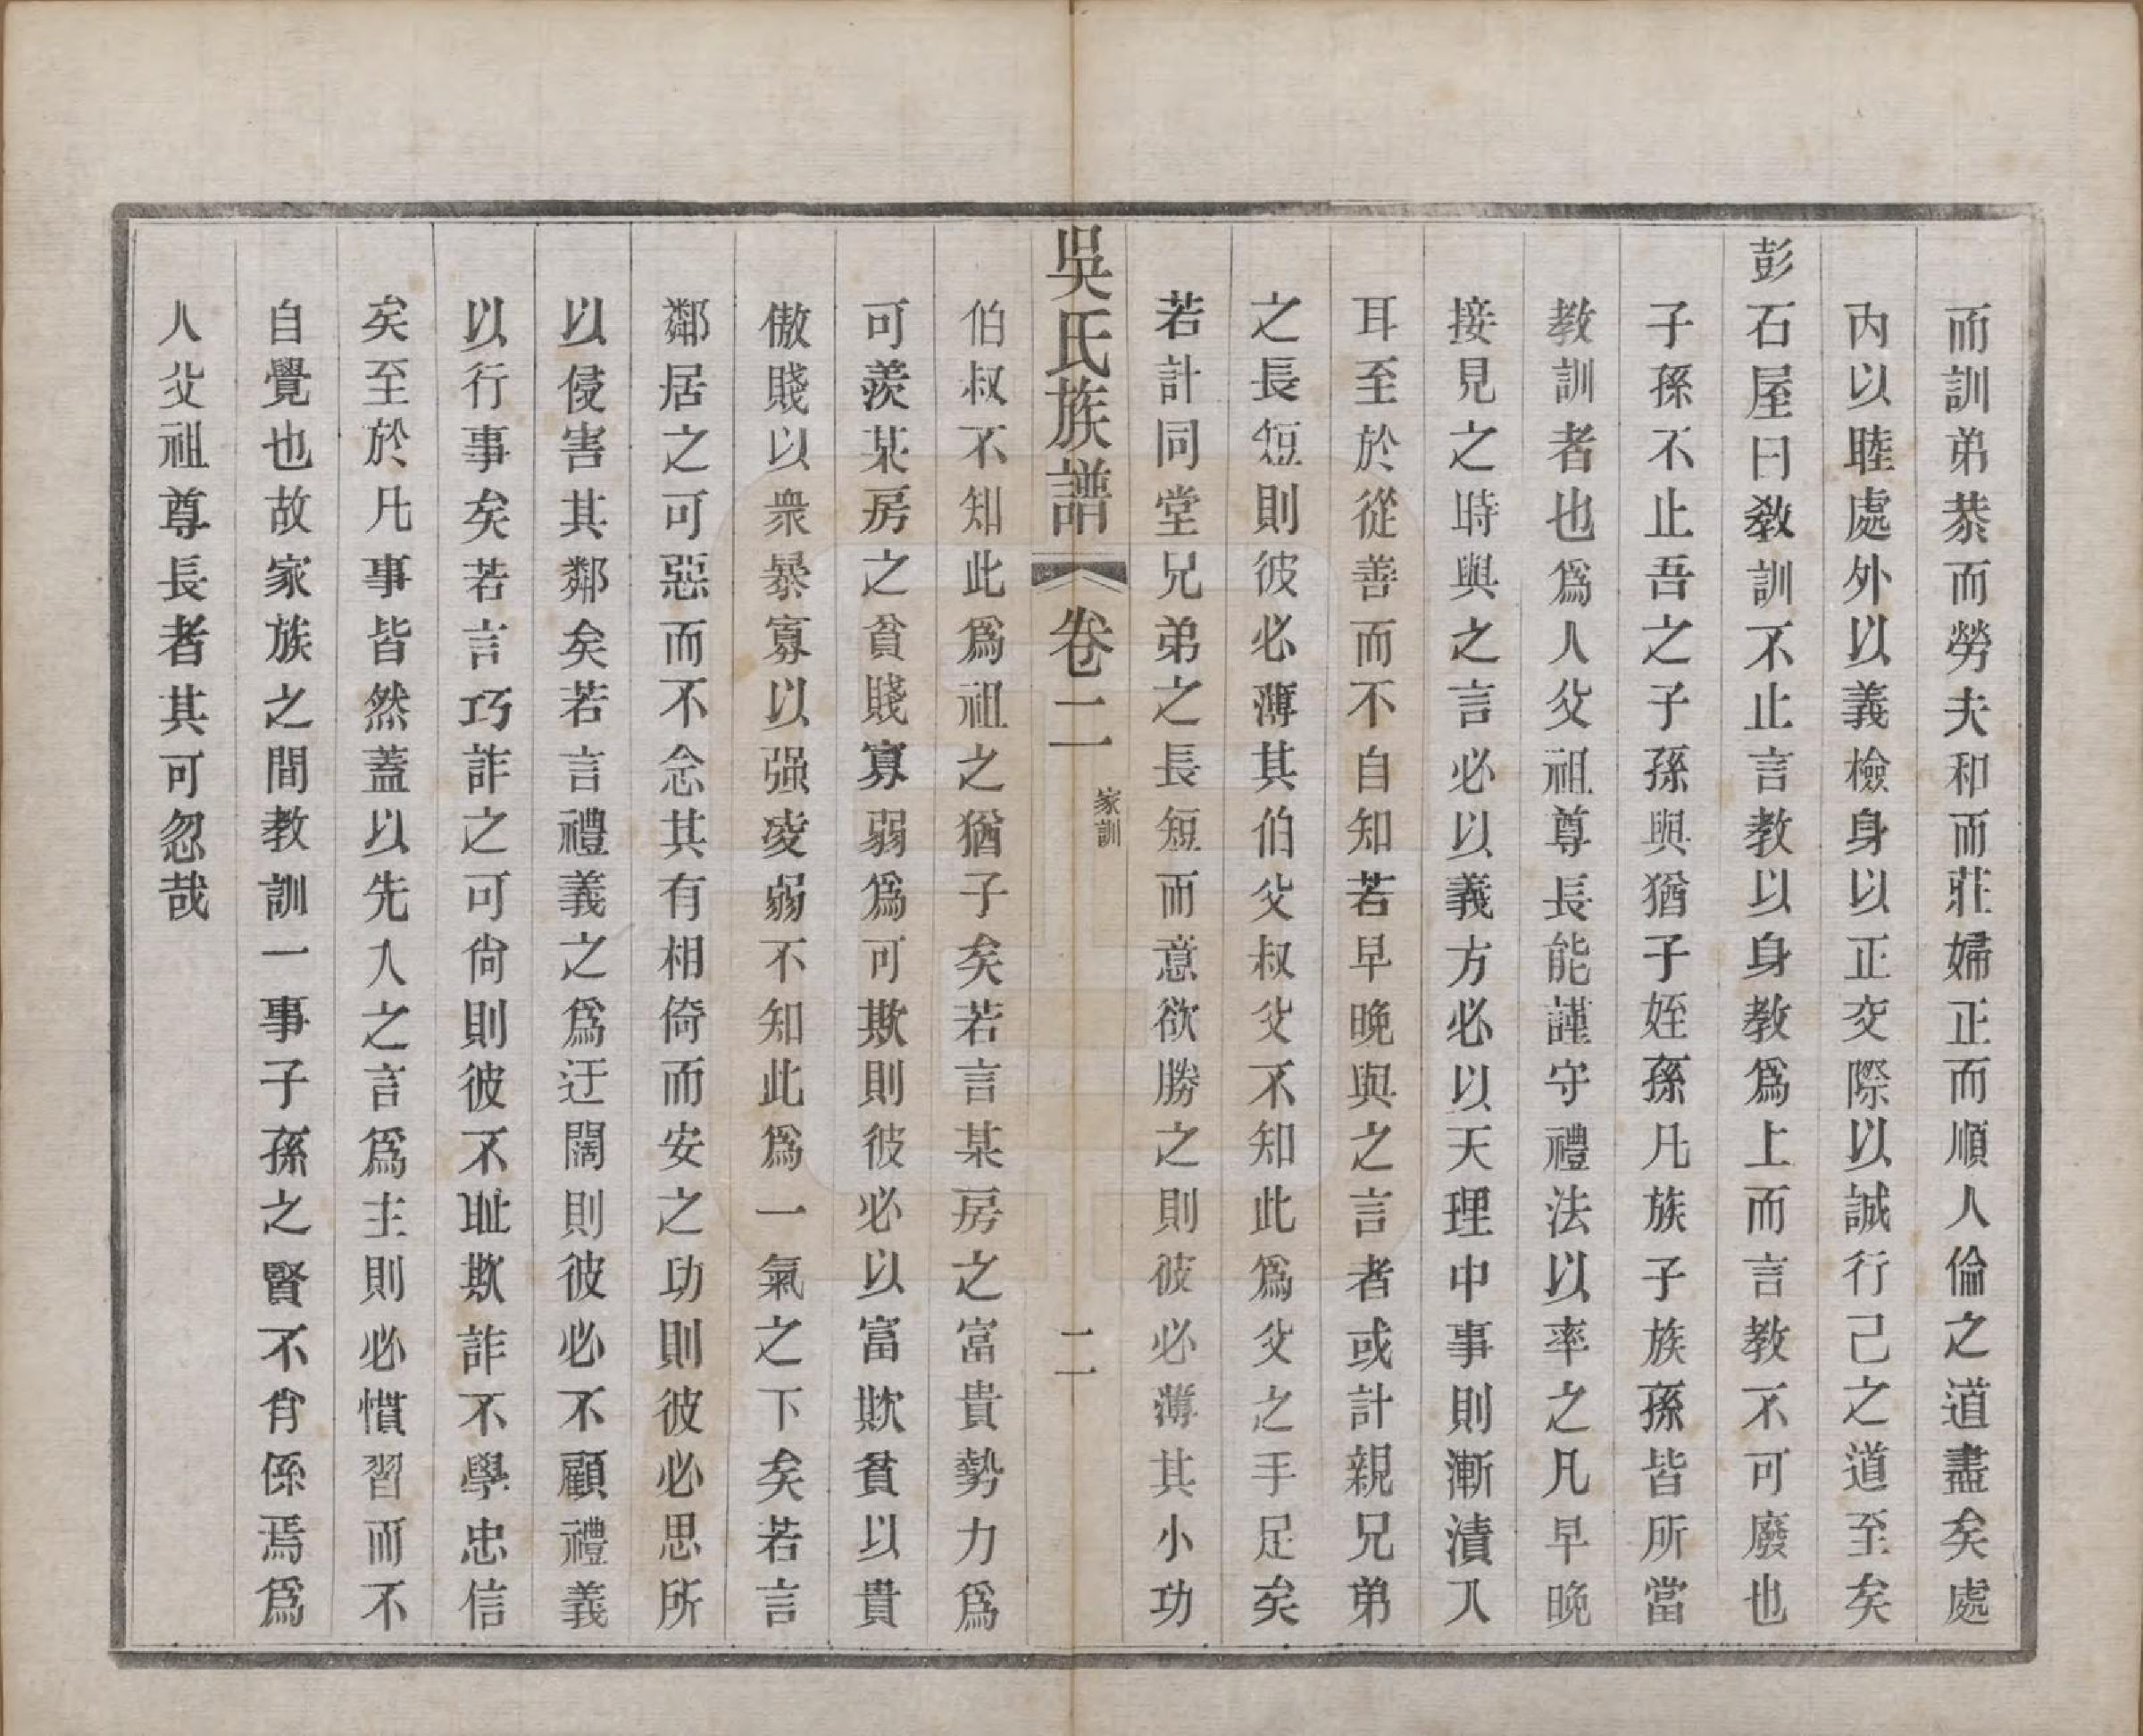 而訓弟恭而勞夫和而莊婦正而順人倫之道盡矣處
內以睦處外以義檢身以正交際以誠行己之道至矣
彭石屋曰教訓不止言教以身教爲上而言教不可廢也
子孫不止吾之子孫與猶子姪孫凡族子族孫皆所當
教訓者也爲人父祖尊長能謹守禮法以率之凡早晚
接見之時與之言必以義方必以天理中事則漸漬入
耳至於從善而不自知若早晚與之言者或計親兄弟
之長短則彼必薄其伯父叔父不知此爲父之手足矣
若計同堂兄弟之長短而意欲勝之則彼必薄其小功
吳氏族譜 卷二 家訓 二
伯叔不知此爲祖之猶子矣若言某房之富貴勢力爲
可羨某房之貧賤寡弱爲可欺則彼必以富欺貧以貴
傲賤以衆暴寡以强凌弱不知此爲一氣之下矣若言
鄰居之可惡而不念其有相倚而安之功則彼必思所
以侵害其鄰矣若言禮義之爲迂闊則彼必不顧禮義
以行事矣若言巧詐之可尙則彼不耻欺詐不學忠信
矣至於凡事皆然蓋以先人之言爲主則必慣習而不
自覺也故家族之間教訓一事子孫之賢不肖係焉爲
人父祖尊長者其可忽哉